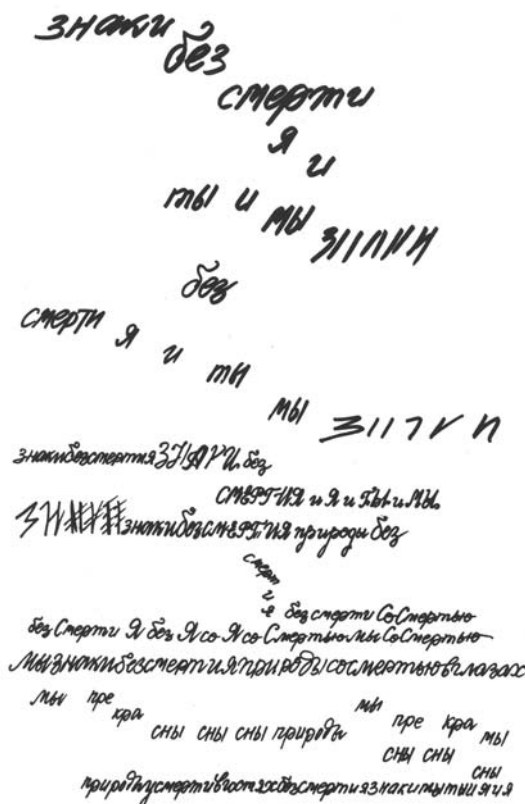 знаки
без
смерти
я
и
ты и мы
без
смерти я и ты
мы
знакибезсмертия ЗНАКИ без
СМЕРТИЯ и Я и ТЫ и МЫ
знакибезСМЕРТИЯ природы без
смерт
и
я
без смерти СоСмертью
без Смерти Я без Я со Я со Смертью мы СоСмертью
Мызнакибезсмертияприродысосмертьювглазах
мы пре кра сны сны сны природы мы пре кра мы
сны сны
сны